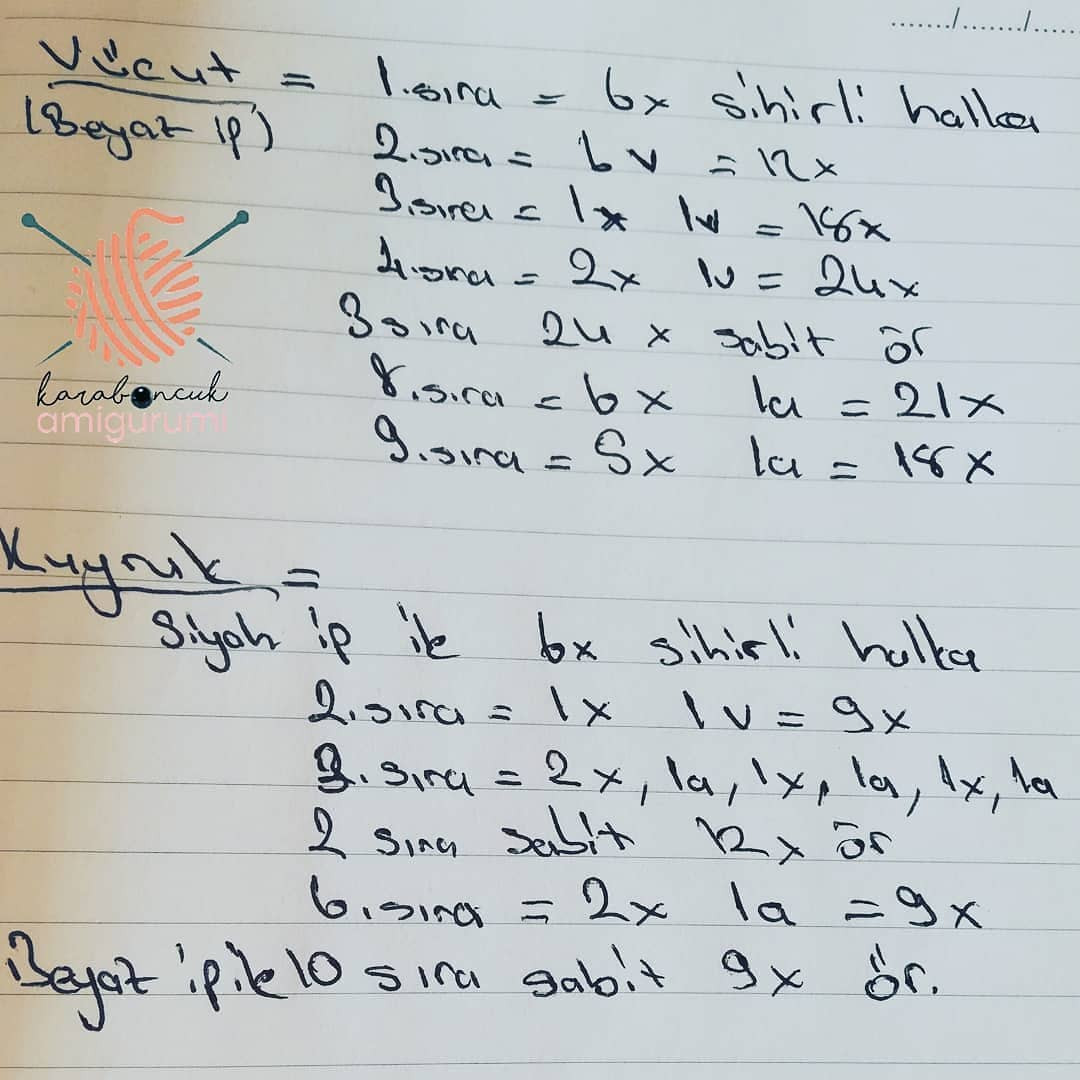 ……/……/……
Vücut = 1.sıra = 6x sihirli halka
(Beyaz ip) 2.sıra = 6v = 12x
3.sıra = 1x 1v = 18x
4.sıra = 2x 1v = 24x
3 sıra 24 x sabit ör
8.sıra = 6x 1a = 21x
9.sıra = 5x 1a = 18x
karaboncuk
amigurumi
Kuyruk =
Siyah ip ile 6x sihirli halka
2.sıra = 1x 1v = 9x
3.sıra = 2x, 1a, 1x, 1a, 1x, 1a
2 sıra sabit 12x ör
6.sıra = 2x 1a = 9x
Beyaz ip ile 10 sıra sabit 9x ör.